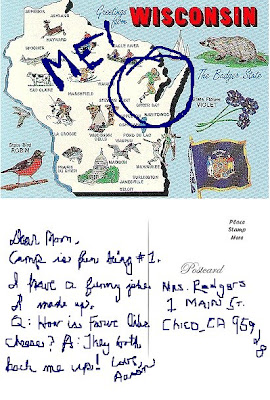 Greetings from
WISCONSIN
ME!
The Badger State
State Flower
VIOLET
HAYWARD
EAU CLAIRE
GREEN BAY
LA CROSSE
FOND DU LAC
State Bird
ROBIN
JANESVILLE
BELOIT
Dear Mom,
Camp is fun being #1.
I have a funny joke
I made up.
Q: How is Favre like
cheese? A: They both
back me up! Love,
Aaron
Place
Stamp
Here
Postcard
Mrs. Rodgers
1 MAIN ST.
CHICO, CA 959